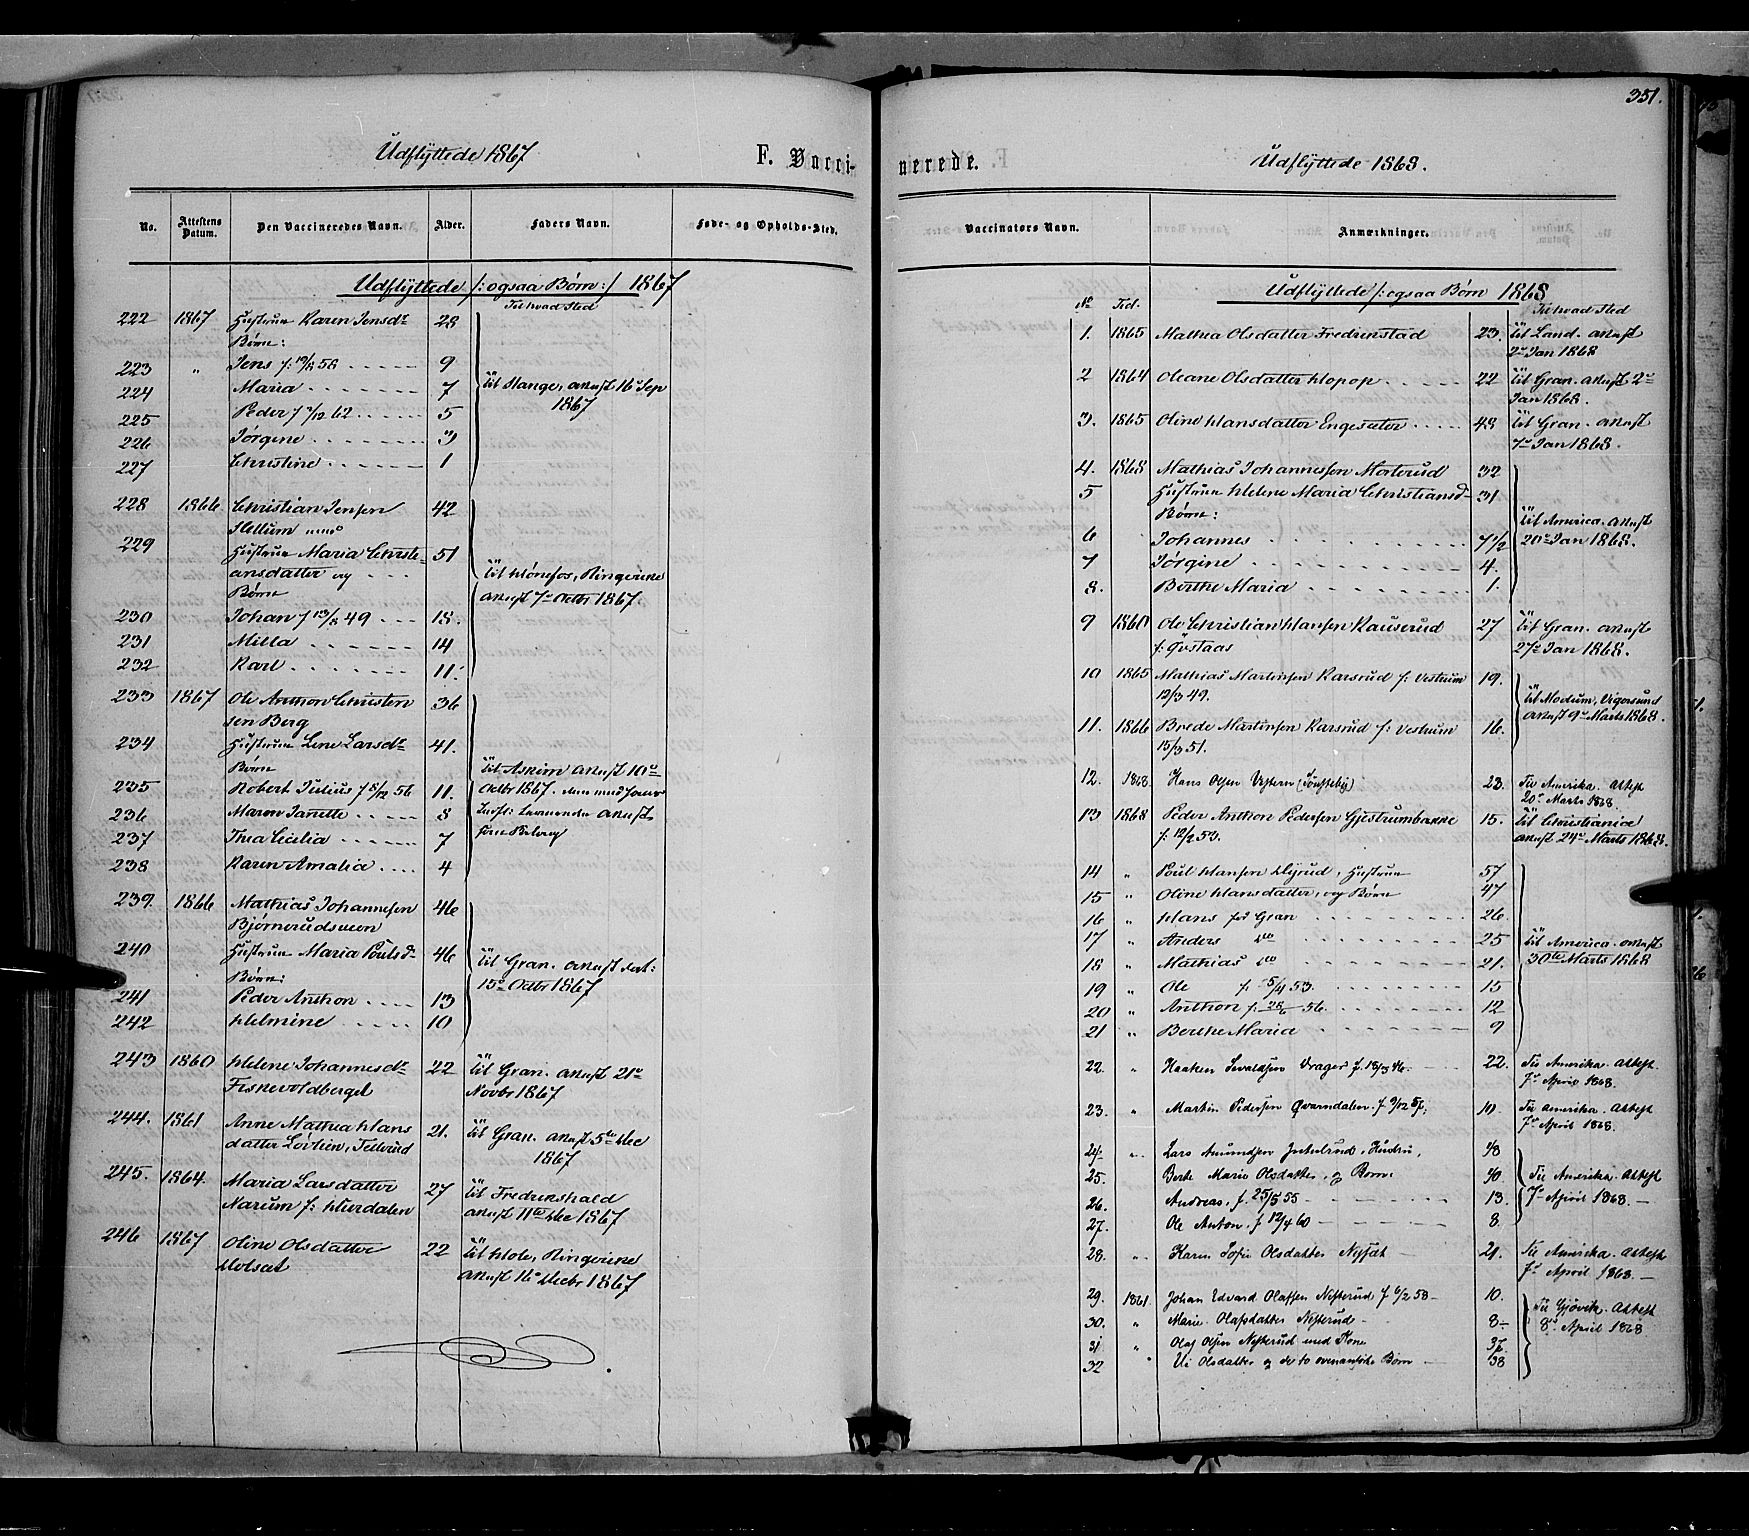 351.
Udflyttede 1867
F. Vacci-
No.
Attestens Datum.
Den Vaccineredes Navn.
Alder.
Faders Navn.
Føde- og Opholds-Sted.
Udflyttede /: ogsaa Børn :/ 1867
Til hvad Sted
222 1867 Hustrue Karen Jensdr 28
Børn:
223 " Jens f. 19/8 58 9
224 Maria 7 Til Stange, Attest 16de Sep
225 Peder f 7/12 62 5 1867
226 Jørgine 3
227 Christine 1
228 1866 Christian Jensen 42
Hellum med
229 Hustrue Maria Christi- 51
ansdatter og Til Hönefos, Ringerike
Børn Attest 7de Octbr 1867.
230 Johan f 13/8 49 18.
231 Milla 14
232 Karl 11.
233 1867 Ole Anthon Christen 36
sen Berg
234 Hustrue Lene Larsdr 41.
Børn Til Askim Attest 10de
235 Robert Julius f 8/12 56 11. Octbr 1867.
236 Maren Janette 8 Attest
237 Thea Cecilia 7
238 Karen Amalia 4
239. 1866 Mathias Johannesen 46
Bjørnerudsveen
240 Hustrue Maria Poulsd 46 Til Gran. Attest dat:
Børn: 15de Octbr 1867
241 Peder Anthon 13
242 Helmine 10
243 1860 Helene Johannesdr 22 Til Gran. Attest 21de
Fiskevoldberget Novbr 1867
244. 1861 Anne Mathea Hans 21. Til Gran. Attest 5te Dec
datter Lovlien, Teilerud 1867
245. 1864 Maria Larsdatter 27 Til Fredrikshald
Narum f: Hverdalen Attest 11te Dec 1867
246 1867 Oline Olsdatter 22 Til Hole, Ringerike
Molset Attest 16de Decbr 1867
nerede.
Udflyttede 1868.
Vaccinatørs Navn.
Anmærkninger.
Udflyttede /: ogsaa Børn 1868
No Tid. Til hvad Sted
1. 1865 Mathea Olsdatter Fredrikstad 23. Til Land. Attest
2de Jan 1868
2 1864 Oleane Olsdatter Hopop 22 Til Gran. Attest 2de
Jan 1868.
3. 1865 Oline Hansdatter Engesæter 48 Til Gran. Attest
7de Jan 1868.
4. 1868 Mathias Johannesen Morterud 32
5 Hustrue Helene Maria Christiansd 31
Børn: Til America. Attest
6 Johannes 7 1/2 20de Jan 1868.
7 Jørgine 4.
8. Berthe Maria 1.
9 1860 Ole Christian Hansen Kauserud 27 Til Gran. Attest
f. Gustaas 27de Jan 1868.
10 1865 Mathias Martinsen Karsrud f: Vestrum 19.
12/3 49. Til Modum, Vigersund
11. 1866 Brede Martinsen Karsrud f: Vestrum 16. Attest 9de Marts 1868.
15/3 51.
12. 1868. Hans Olsen Vestern 23. Til Amerika. Attest
20de Marts 1868.
13 1868 Peder Anthon Pedersen Gjestrumbakke 15. Til Christiania
f. 12/2 53. Attest 24de Marts 1868.
14 " Poul Hansen Dyrud, Hustrue 57
15 " Oline Hansdatter, og Børn 47
16 " Hans paa Gran 26.
17 " Anders do 25 Til America. Attest
18 " Mathias do 21. 30te Marts 1868
19 " Ole f. 5/4 53. 15
20 " Anthon f. 28/6 56. 12
21 " Berthe Maria 9
22. " Haaken Sevaldsen Vrager f. 18/3 46. 22. Til Amerika. Attest.
7de April 1868.
23. " Martin Pedersen Qvarndalen. f 9/12 57; 10. Til Amerika. Attest
7de April 1868.
24. " Lars Amundsen Hustru, 48
25. Berte Marie Olsdatter, og Børn. 40 Til Amerika. Attest
26. Andreas, f 25/5 55 13. 7de April 1868.—
27. Ole Anton, f 12/4 60 8.
28. " Karen Sofie Olsdatter 21. Til Amerika. Attest
7de April 1868.—
29. 1861. Johan Edvard Olafsen Nesterud f 6/2 58 10.
30. " Marie Olafsdatter Nesterud 8 Til Gjøvik. Attest
31 " Olaf Olsen Nesterud med Kone 37. 8de April 1868
32 " Olsdatter og de to ovenanførte Børn 38